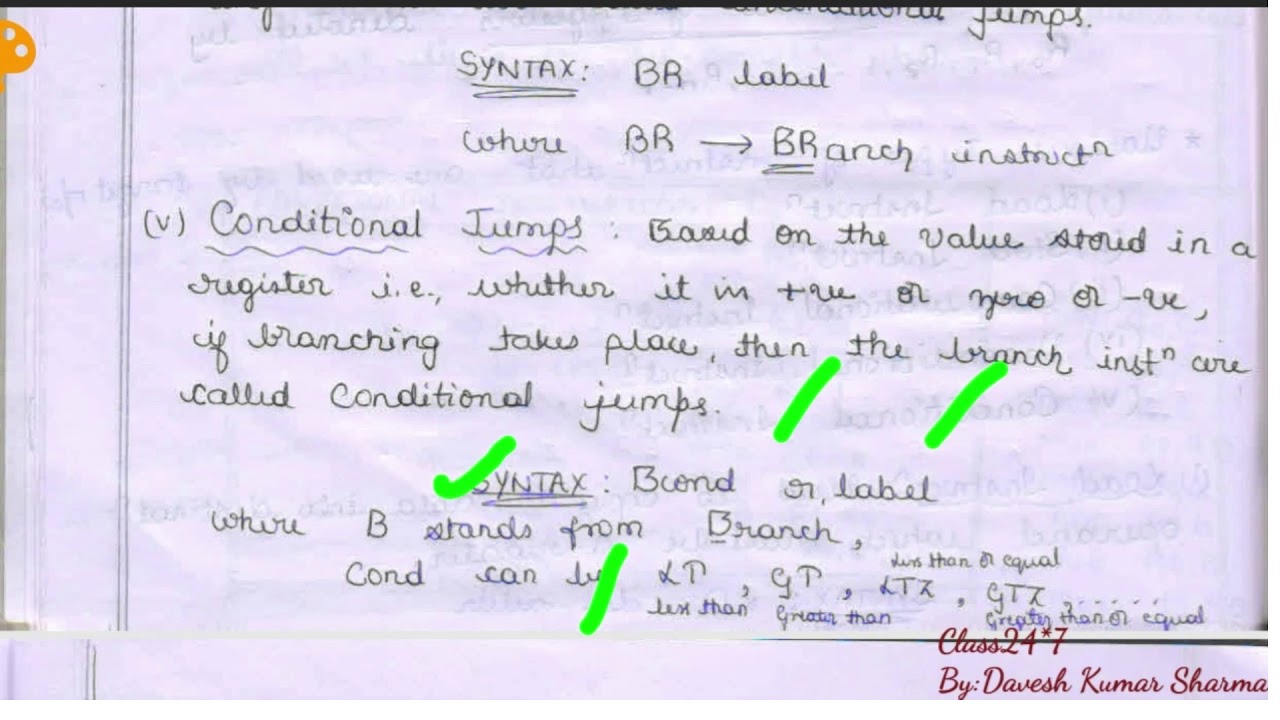 jumps.
SYNTAX: BR label
where BR → BRanch instructⁿ
(v) Conditional Jumps : Based on the value stored in a
register i.e., whether it is +ve or zero or -ve,
if branching takes place, then the branch instⁿ are
called Conditional jumps.
SYNTAX : Bcond r, label
where B stands from Branch,
less than or equal
Cond can be LT, GT, LTZ, GTZ ......
less than greater than greater than or equal
Class24*7
By:Davesh Kumar Sharma